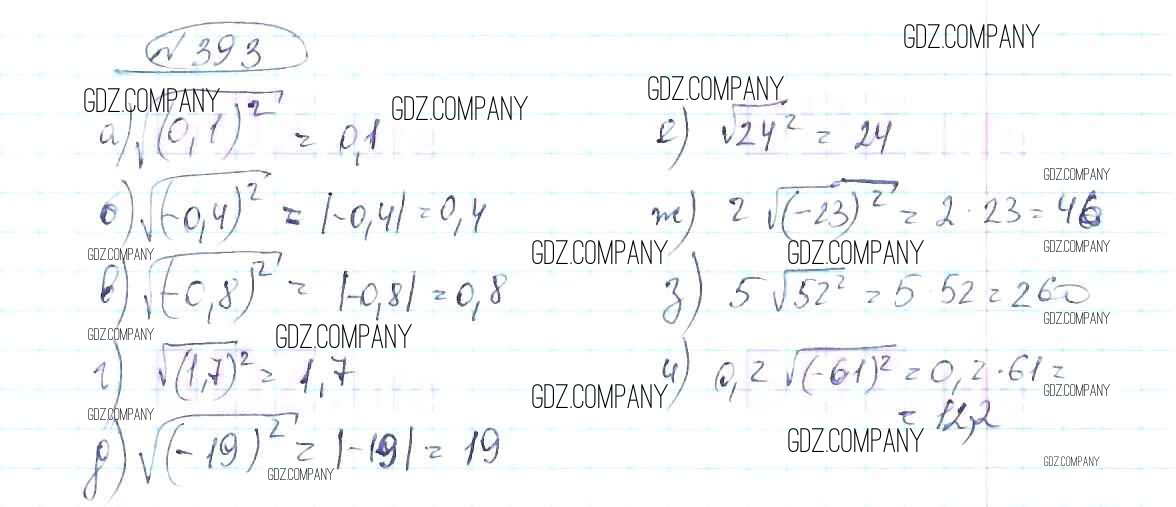 № 393
GDZ.COMPANY
GDZ.COMPANY
GDZ.COMPANY
GDZ.COMPANY
а) √(0,1)² = 0,1
б) √(-0,4)² = |-0,4| = 0,4
GDZ.COMPANY
GDZ.COMPANY
в) √(-0,8)² = |-0,8| = 0,8
GDZ.COMPANY
GDZ.COMPANY
г) √(1,7)² = 1,7
GDZ.COMPANY
GDZ.COMPANY
д) √(-19)² = |-19| = 19
GDZ.COMPANY
е) √24² = 24
GDZ.COMPANY
ж) 2 √(-23)² = 2 · 23 = 46
GDZ.COMPANY
GDZ.COMPANY
з) 5 √52² = 5 · 52 = 260
GDZ.COMPANY
и) 0,2 √(-61)² = 0,2 · 61 =
GDZ.COMPANY
= 12,2
GDZ.COMPANY
GDZ.COMPANY